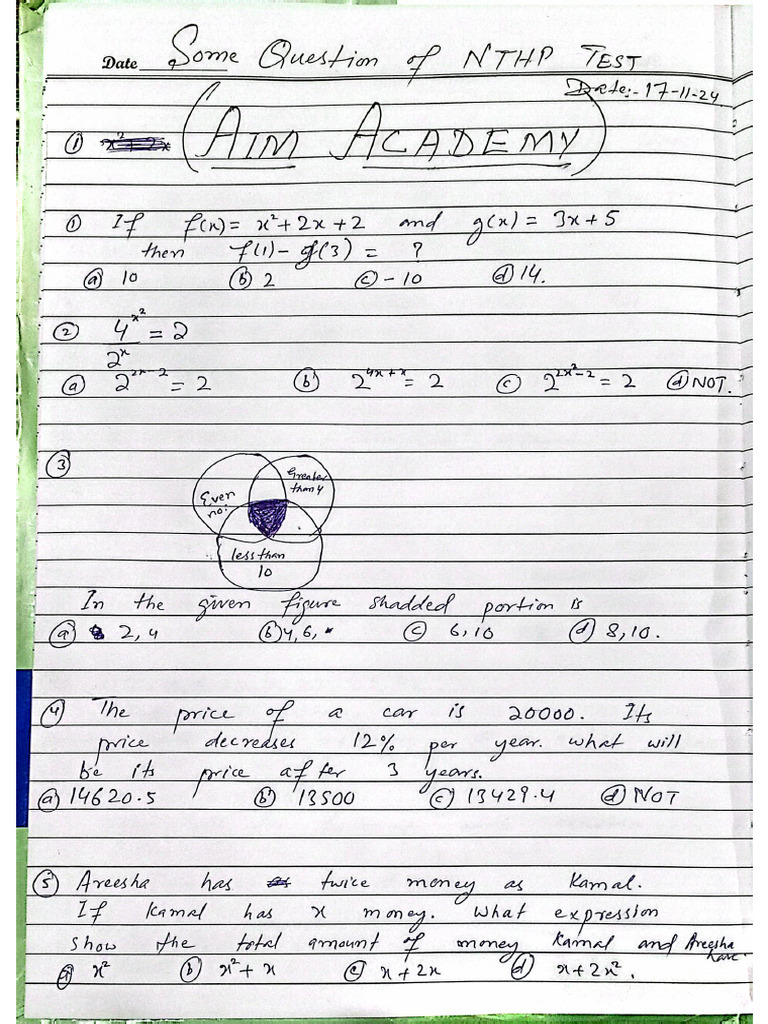 Date Some Question of NTHP TEST
Date:- 17-11-24
① (AIM ACADEMY)
① If f(x) = x²+2x+2 and g(x) = 3x+5
then f(1) - g(3) = ?
ⓐ 10 ⓑ 2 ⓒ -10 ⓓ 14.
② 4^x² / 2^x = 2
ⓐ 2^2x-2 = 2 ⓑ 2^4x+x = 2 ⓒ 2^2x²-2 = 2 ⓓ NOT.
③
Even no:
Greater than 4
less than 10
In the given figure shadded portion is
ⓐ 2, 4 ⓑ 4, 6, ⓒ 6, 10 ⓓ 8, 10.
④ The price of a car is 20000. Its
price decreases 12% per year. what will
be its price after 3 years.
ⓐ 14620.5 ⓑ 13500 ⓒ 13429.4 ⓓ NOT
⑤ Areesha has twice money as Kamal.
If Kamal has x money. What expression
show the total amount of money Kamal and Areesha have.
ⓐ x² ⓑ x²+x ⓒ x+2x ⓓ x+2x².